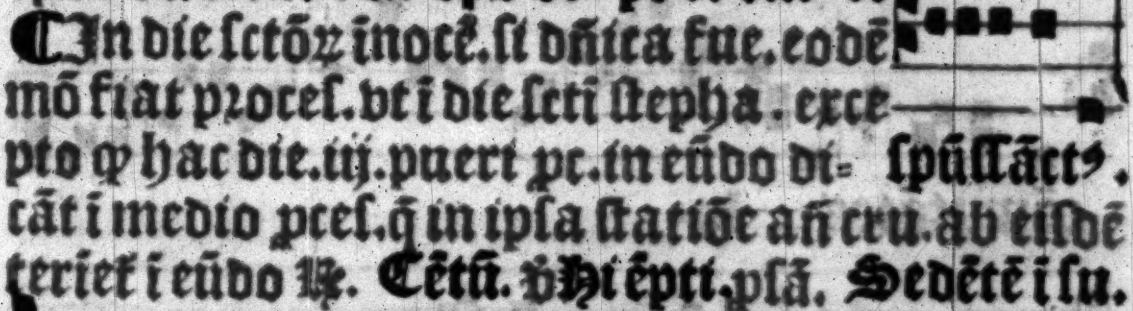 ¶ In die sctōꝝ īnocē̄. si dn̄ica fue. eodē
mō fiat proces. vt ī die scti stepha. exce
pto ꝙ hac die. iij. pueri pc. in eūdo di⸗ spūssāctꝰ.
cāt ī medio ꝓces. q̄ in ipsa statiōe an̄ cru. ab eisdē
teriet̄ ī eūdo ℟. Cētū. ꝟ Hi ēpti. psā. Sedētē ī su.